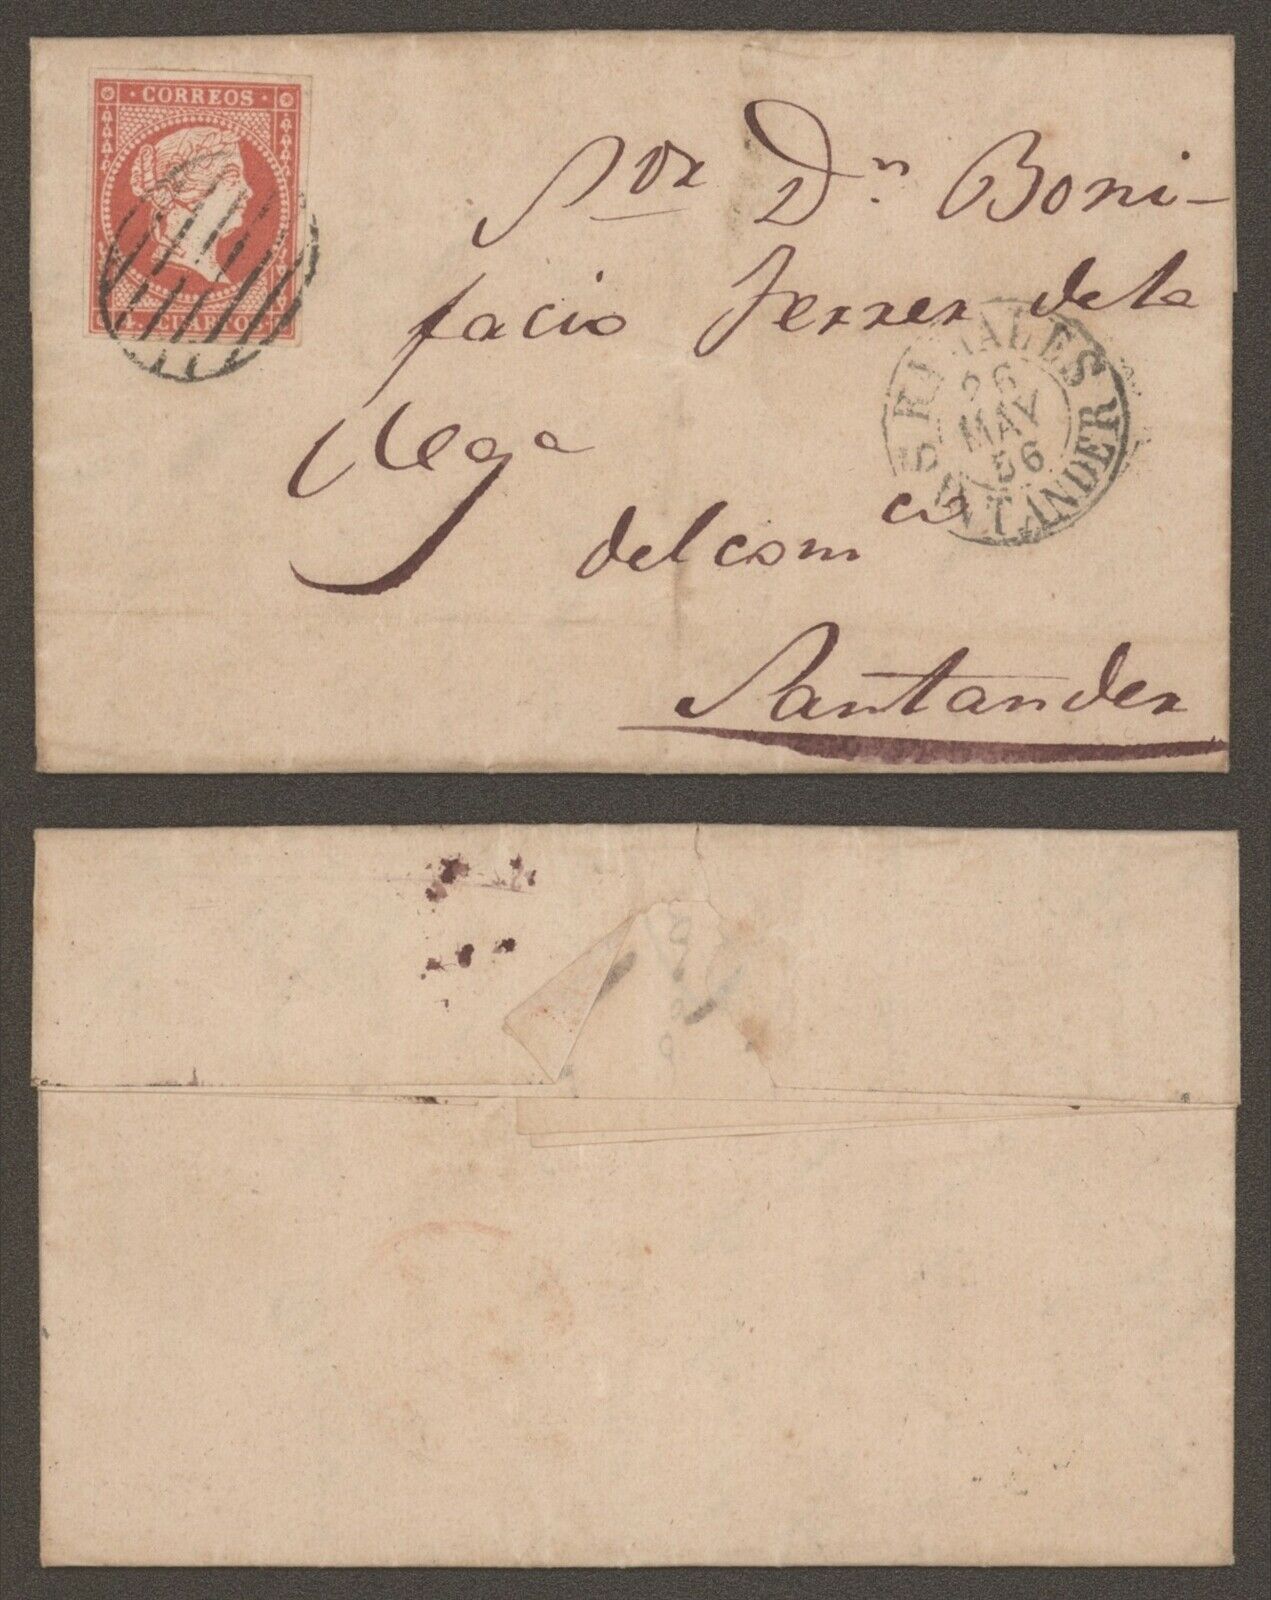 · CORREOS ·
CUARTOS
Sor Dn Boni-
facio Ferrer de la
Vega
del comcio
Santander
RAMALES
26
MAY
56
SANTANDER